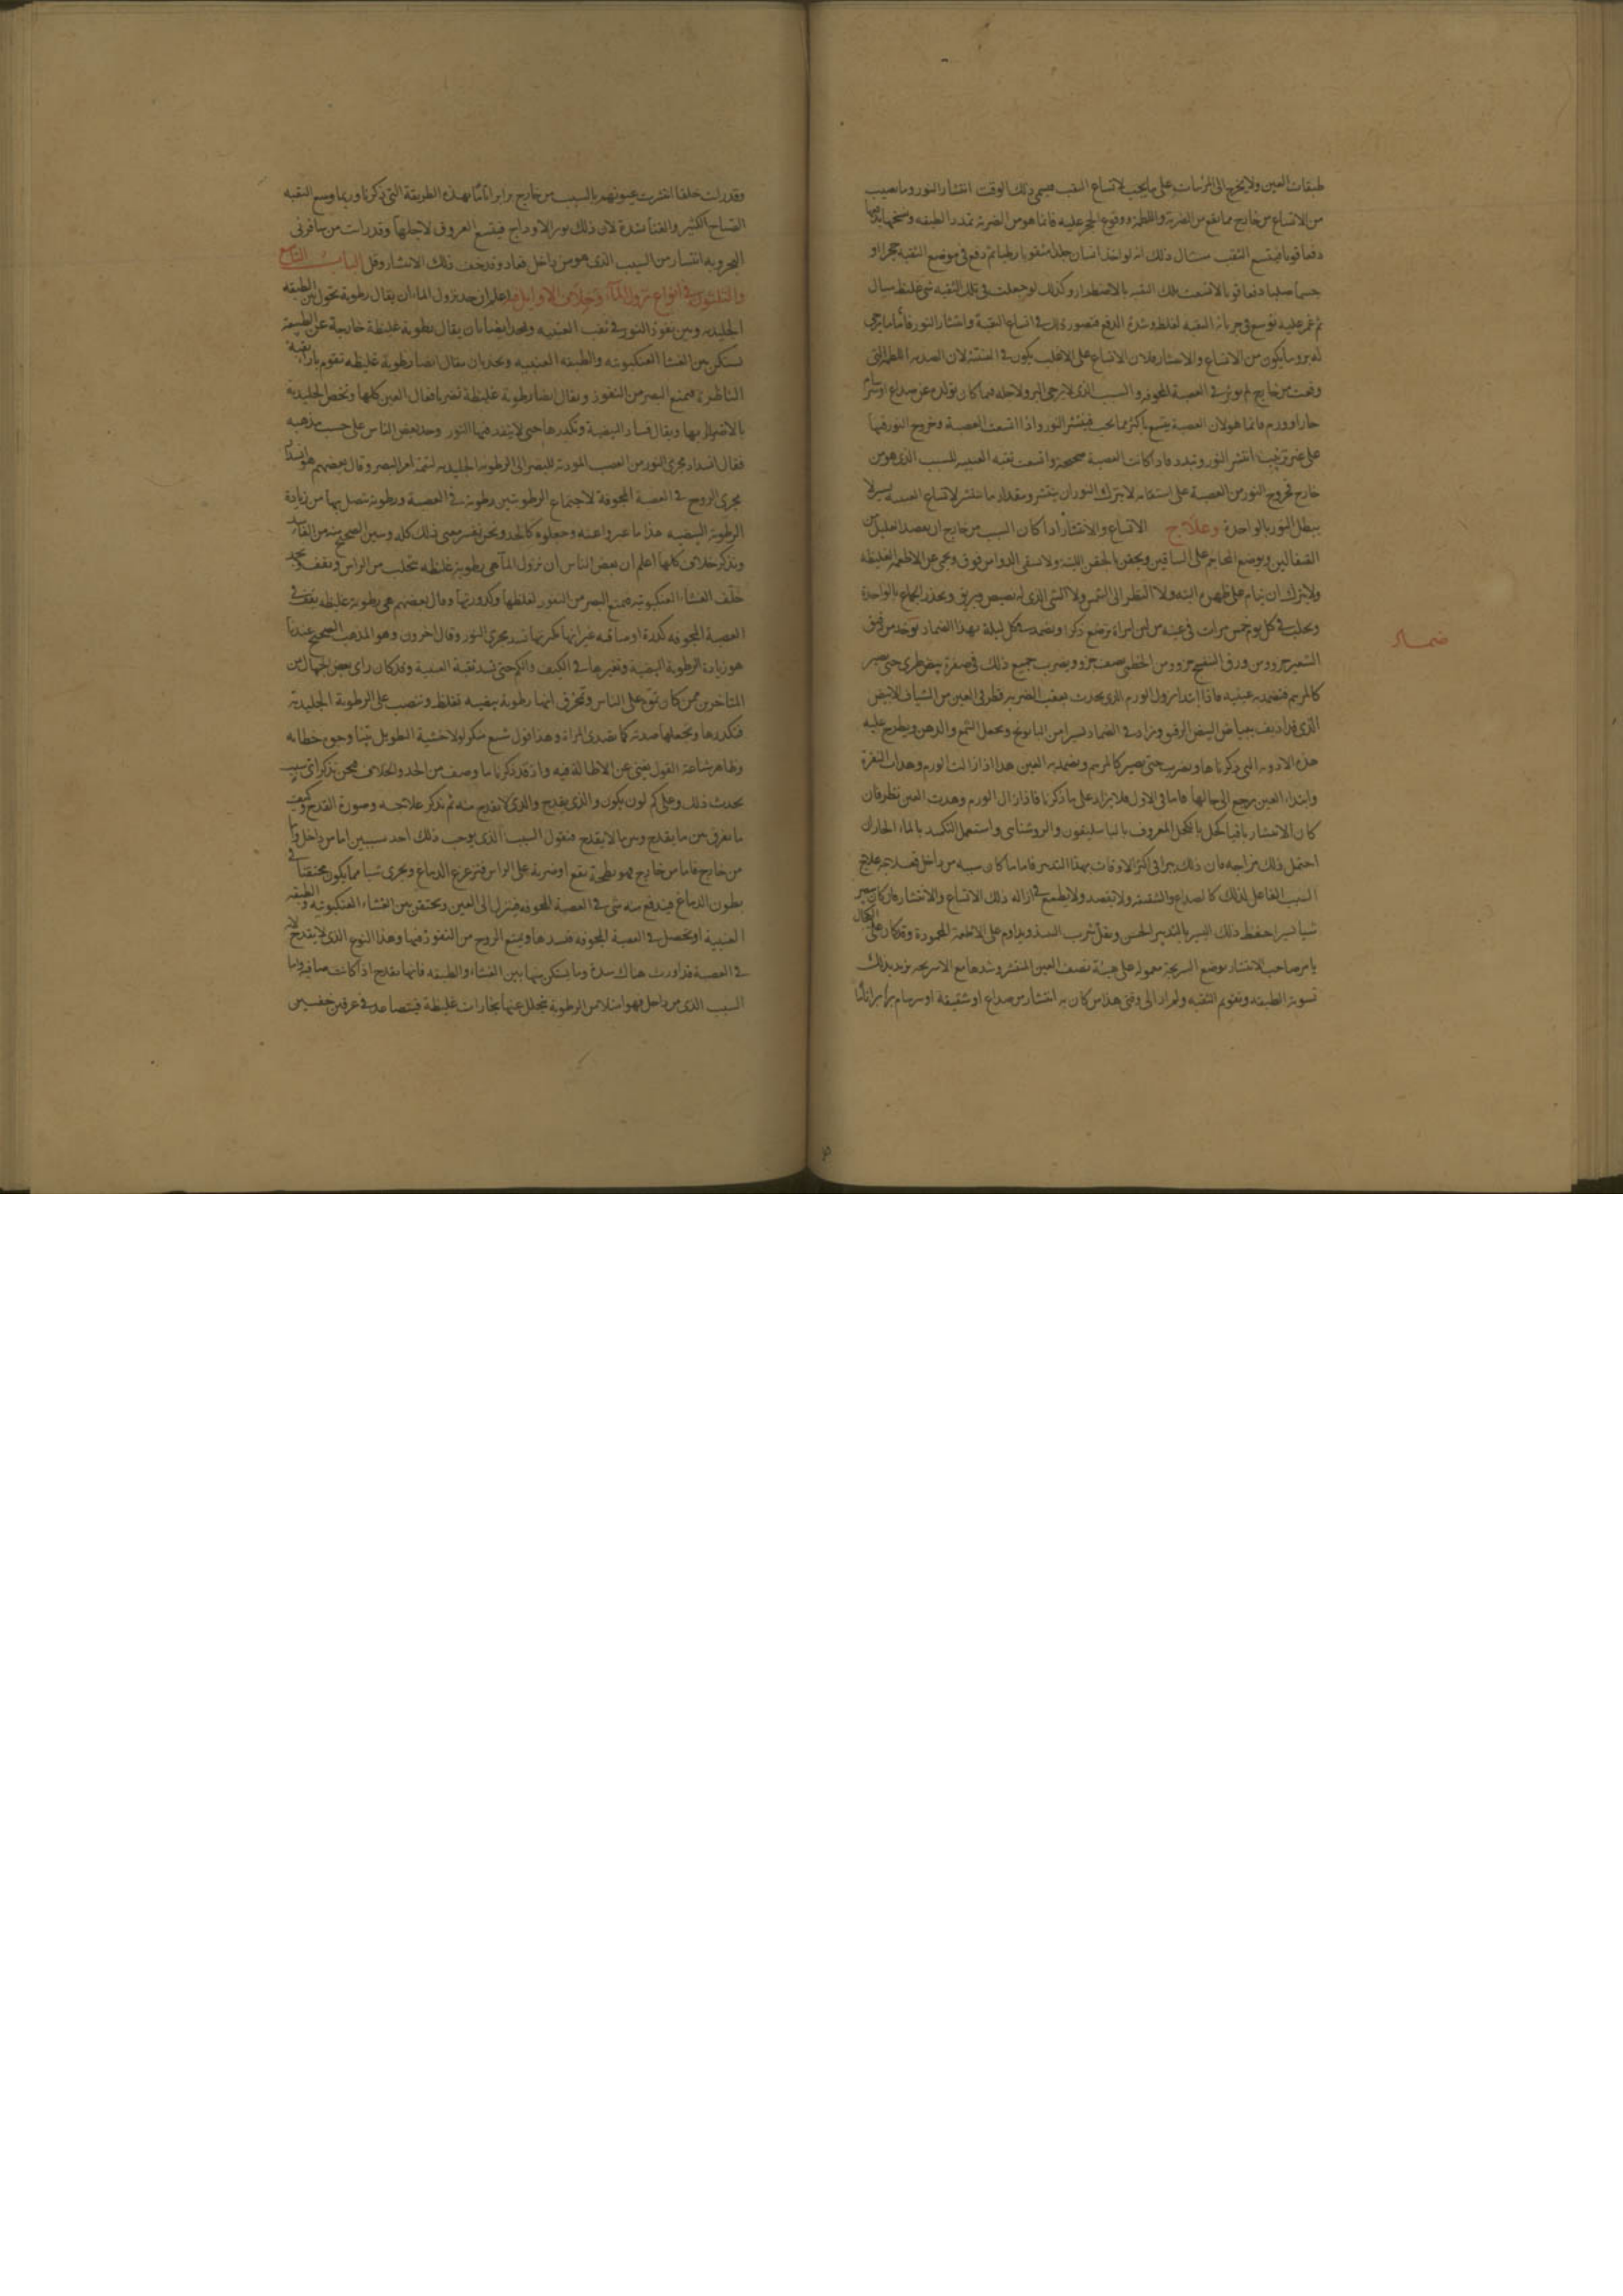 طبقات العين ولا يخرج الى المرئيات على ما يجب لاتساع الثقب فيسمى ذلك الوقت انتشار النور وما يصيب
من الاتساع من خارج مما يقع من الضربة واللطمة ووقوع الحجر عليه فانما هو من الضربة تمدد الطبقة
دفعا قويا فيتسع الثقب مثال ذلك انه لو اخذ انسان جلدا مثقوبا رطبا ثم دفع في موضع الثقبة حجرا او
جسما صلبا دفعا قويا لاتسعت تلك الثقبة بالاضطرار وكذلك لو جعلت في تلك الثقبة شي غليظ سيال
ثم غمر عليه توسع في جريانه الثقبة لغلظه وشدة الدفع فتصور ذلك في اتساع الثقبة وانتشار النور فاما ما يرجى
له برو وما يكون من الاتساع والانتشار فلان الاتساع على الاغلب يكون في لان الصدمة اللطمة التي
وقعت من خارج لم يوثر في العصبة المجوفة والسبب الذي لا يرجى البرو لاجله فما كان تولده عن صداع او
حارا وورم فانما هو لان العصبة يتسع باكثر مما يجب فينتشر النور واذا اتسعت العصبة وخروج النور فيها
على غير ترتيب انتشر النور وتبدد فاذا كانت العصبة صحيحة واتسعت ثقبة العنبية للسبب الذي هو من
خارج فخروج النور من العصبة على استقامة لا يترك النور ان ينتشر ومقدار ما ينتشر لاتساع العنبية يسير لا
يبطل النور بالواحدة وعلاج الاتساع والانتشار اذا كان السبب من خارج ان يفصد العليل من
القيفالين ويوضع المحاجم على الساقين ويحقن بالحقن اللينة ولا يسقى الدوا من فوق ويحمى عن الاطعمة الغليظة
ولا يترك ان ينام على ظهره البتة ولا النظر الى الشمس ولا الشي الذي له بصيص وبريق ويحذر الجماع بالواحدة
ويحلب في كل يوم خمس مرات في عينه من لبن امراة ترضع ذكرا ويضمد في كل ليلة بهذا الضماد يوخذ من دقيق
ضماد
الشعير جزو ومن ورق البنفسج جزو ومن الخطمي نصف جزو ويضرب جميع ذلك في صفرة بيض طري حتى يصير
كالمرهم فيضمد به عينيه فاذا ابتدا يزول الورم الذي يحدث بعقب الضربة قطر في العين من الشياف الابيض
الذي قد اديف ببياض البيض الرقيق ويزاد في الضماد يسيرا من البابونج ويجعل الشمع والدهن ويطرح عليه
هذه الادوية التي ذكرناها ويضرب حتى يصير كالمرهم ويضمد به العين هذا اذا زالت الورم وهدات النفرة
وابتدا العين يرجع الى حالها فاما في الاول فلا يزاد على ما ذكرنا فاذا زال الورم وهدت العين نظر فان
كان الانتشار باقيا كحل بالكحل المعروف بالباسليقون والروشناي واستعمل التكميد بالماء الحار ان
احتمل ذلك مزاجه فان ذلك يبرا في اكثر الاوقات بهذا التدبير فاما ما كان سببه من داخل علاج
السبب الفاعل لذلك كالصداع والشقيقة ولا يقصد ولا يطمع في ازالة ذلك الاتساع والانتشار فان كان يسير
شيا يسيرا حفظ ذلك اليسير بالتدبير الحسن ويقل شرب النبيذ ويداوم على الاطعمة المحمودة وقد كان على الكحال
يامر صاحب الانتشار بوضع معموله على هيئة نصف العين المنتشر وشدها مع يريد بذلك
تسوية الطبقة وتقويم الثقبة ولم ار الى وقتي هذا من كان به انتشار من صداع او شقيقة او سرسام برا برا تاما
وقد رات خلقا انتشرت عيونهم بالسبب من خارج برا براتاما بهذه الطريقة التي ذكرنا وربما وسع الثقبة
الصياح الكثير والغنا بشدة لان ذلك يوتر الاوداج فيتسع العروق لاجلها وقد رات من سافر في
البحر وبه انتشار من السبب الذي هو من داخل فعاد وقد خف ذلك الانتشار وقل الباب التاسع
والثلثون في انواع نزول الماء وخلاف الاوايل فيه اعلم ان حد نزول الماء ان يقال رطوبة تحول بين الطبقة
الجليدية وبين نفوذ النور في ثقب العنبية ويحد ايضا بان يقال رطوبة غليظة خارجة عن الطبيعة
تستكن بين الغشا العنكبوتية والطبقة العنبية ويحد بان يقال ايضا رطوبة غليظة تقوم بازا ثقبة
الناظر فيمنع البصر من النفوذ ويقال ايضا رطوبة غليظة تضر بافعال العين كلها وتخص الجليدية
بالاضرار بها ويقال فساد البيضية وتكدرها حتى لا ينفذ فيها النور وحد بعض الناس على حسب مذهبه
فقال انسداد مجرى النور من العصب المودية للبصر الى الرطوبة الجليدية لتتمة امر البصر وقال بعضهم هو انسداد
مجرى الروح في العصبة المجوفة لاجتماع الرطوبتين رطوبة في العصبة ورطوبة تتصل بها من زيادة
الرطوبة البيضية هذا ما عبروا عنه وجعلوه كالحد ونحن نفسر معنى ذلك كله ونبين الصحيح منه من الفاسد
ونذكر خلاف كلها اعلم ان بعض الناس ان نزول الما هي رطوبة غليظة تتحلب من الراس وتقف
خلف الغشاء العنكبوتية فيمنع البصر من النفوذ لغلظها وكدورتها وقال بعضهم هي رطوبة غليظة يقف في
العصبة المجوفة كدرة او صافية غير انها يسد مجرى النور وقال اخرون وهو المذهب الصحيح عندنا
هو زيادة الرطوبة البيضية وتغيرها في الكيف والكم حتى تسد ثقبة العنبية وقد كان راى بعض الجهال من
المتاخرين ممن كان على الناس انها رطوبة بيضية تغلظ وتنصب على الرطوبة الجليدية
فتكدرها وتجعلها صدئة كما تصدى المراة وهذا قول شنع منكر ولا خشية التطويل بينا وجوه خطائه
وظاهر شناعة القول يغني عن الاطالة فيه واذ قد ذكرنا ما وصف من الحد والخلاف فنحن نذكر اي سبب
يحدث ذلك وعلى كم لون يكون والذي يقدح والذي لا يقدح منه ثم نذكر علاجه وصورة القدح وكيف
ما يفرق بين ما يقدح وبين ما لا يقدح فنقول السبب الذي يوجب ذلك احد سببين اما من داخل واما
من خارج فاما من خارج فهو بطحة تقع او ضربة على الراس فتزعزع الدماغ ويجري شيا مما يكون محتقنا في
بطون الدماغ فيندفع منه شي في العصبة المجوفة فينزل الى العين ويحتقن بين الغشاء العنكبوتية والطبقة
العنبية او يحصل في العصبة المجوفة فيسدها ويمنع الروح من النفوذ فيها وهذا النوع الذي لا يقدح لانه
في العصبة قد اورث هناك سدة وما يستكن منها بين الغشاء والطبقة فانها يقدح اذا كانت صافية واما
السبب الذي من داخل فهو امتلا من الرطوبة يتحلل عنها بخارات غليظة فيتصاعد في عرقين